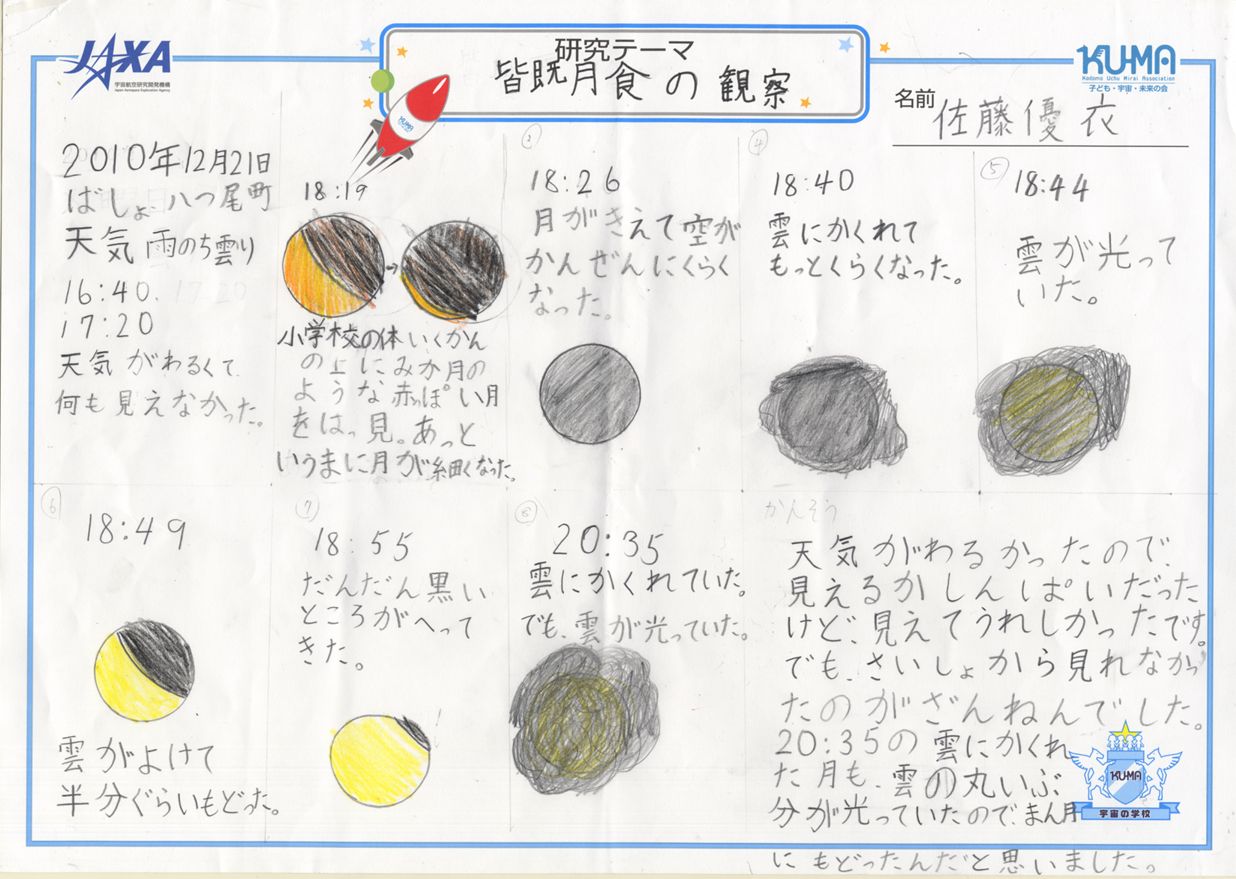 JAXA
宇宙航空研究開発機構
Japan Aerospace Exploration Agency
研究テーマ
皆既月食の観察
KUMA
KUMA
Kodomo Uchu Mirai Association
子ども・宇宙・未来の会
名前 佐藤優衣
2010年12月21日
ばしょ 八つ尾町
天気 雨のち曇り
16:40.
17:20
天気がわるくて
何も見えなかった。
18:19
小学校の体いくかん
の上にみか月の
ような赤っぽい月
をはっ見。あっと
いうまに月が細くなった。
③
18:26
月がきえて空が
かんぜんにくらく
なった。
④
18:40
雲にかくれて
もっとくらくなった。
⑤
18:44
雲が光って
いた。
⑥
18:49
雲がよけて
半分ぐらいもどった。
⑦
18:55
だんだん黒い
ところがへって
きた。
⑧
20:35
雲にかくれていた。
でも、雲が光っていた。
かんそう
天気がわるかったので、
見えるかしんぱいだった
けど、見えてうれしかったです。
でも、さいしょから見れなかっ
たのがざんねんでした。
20:35の雲にかくれ
た月も、雲の丸いぶ
分が光っていたので、まん月
にもどったんだと思いました。
KUMA
宇宙の学校